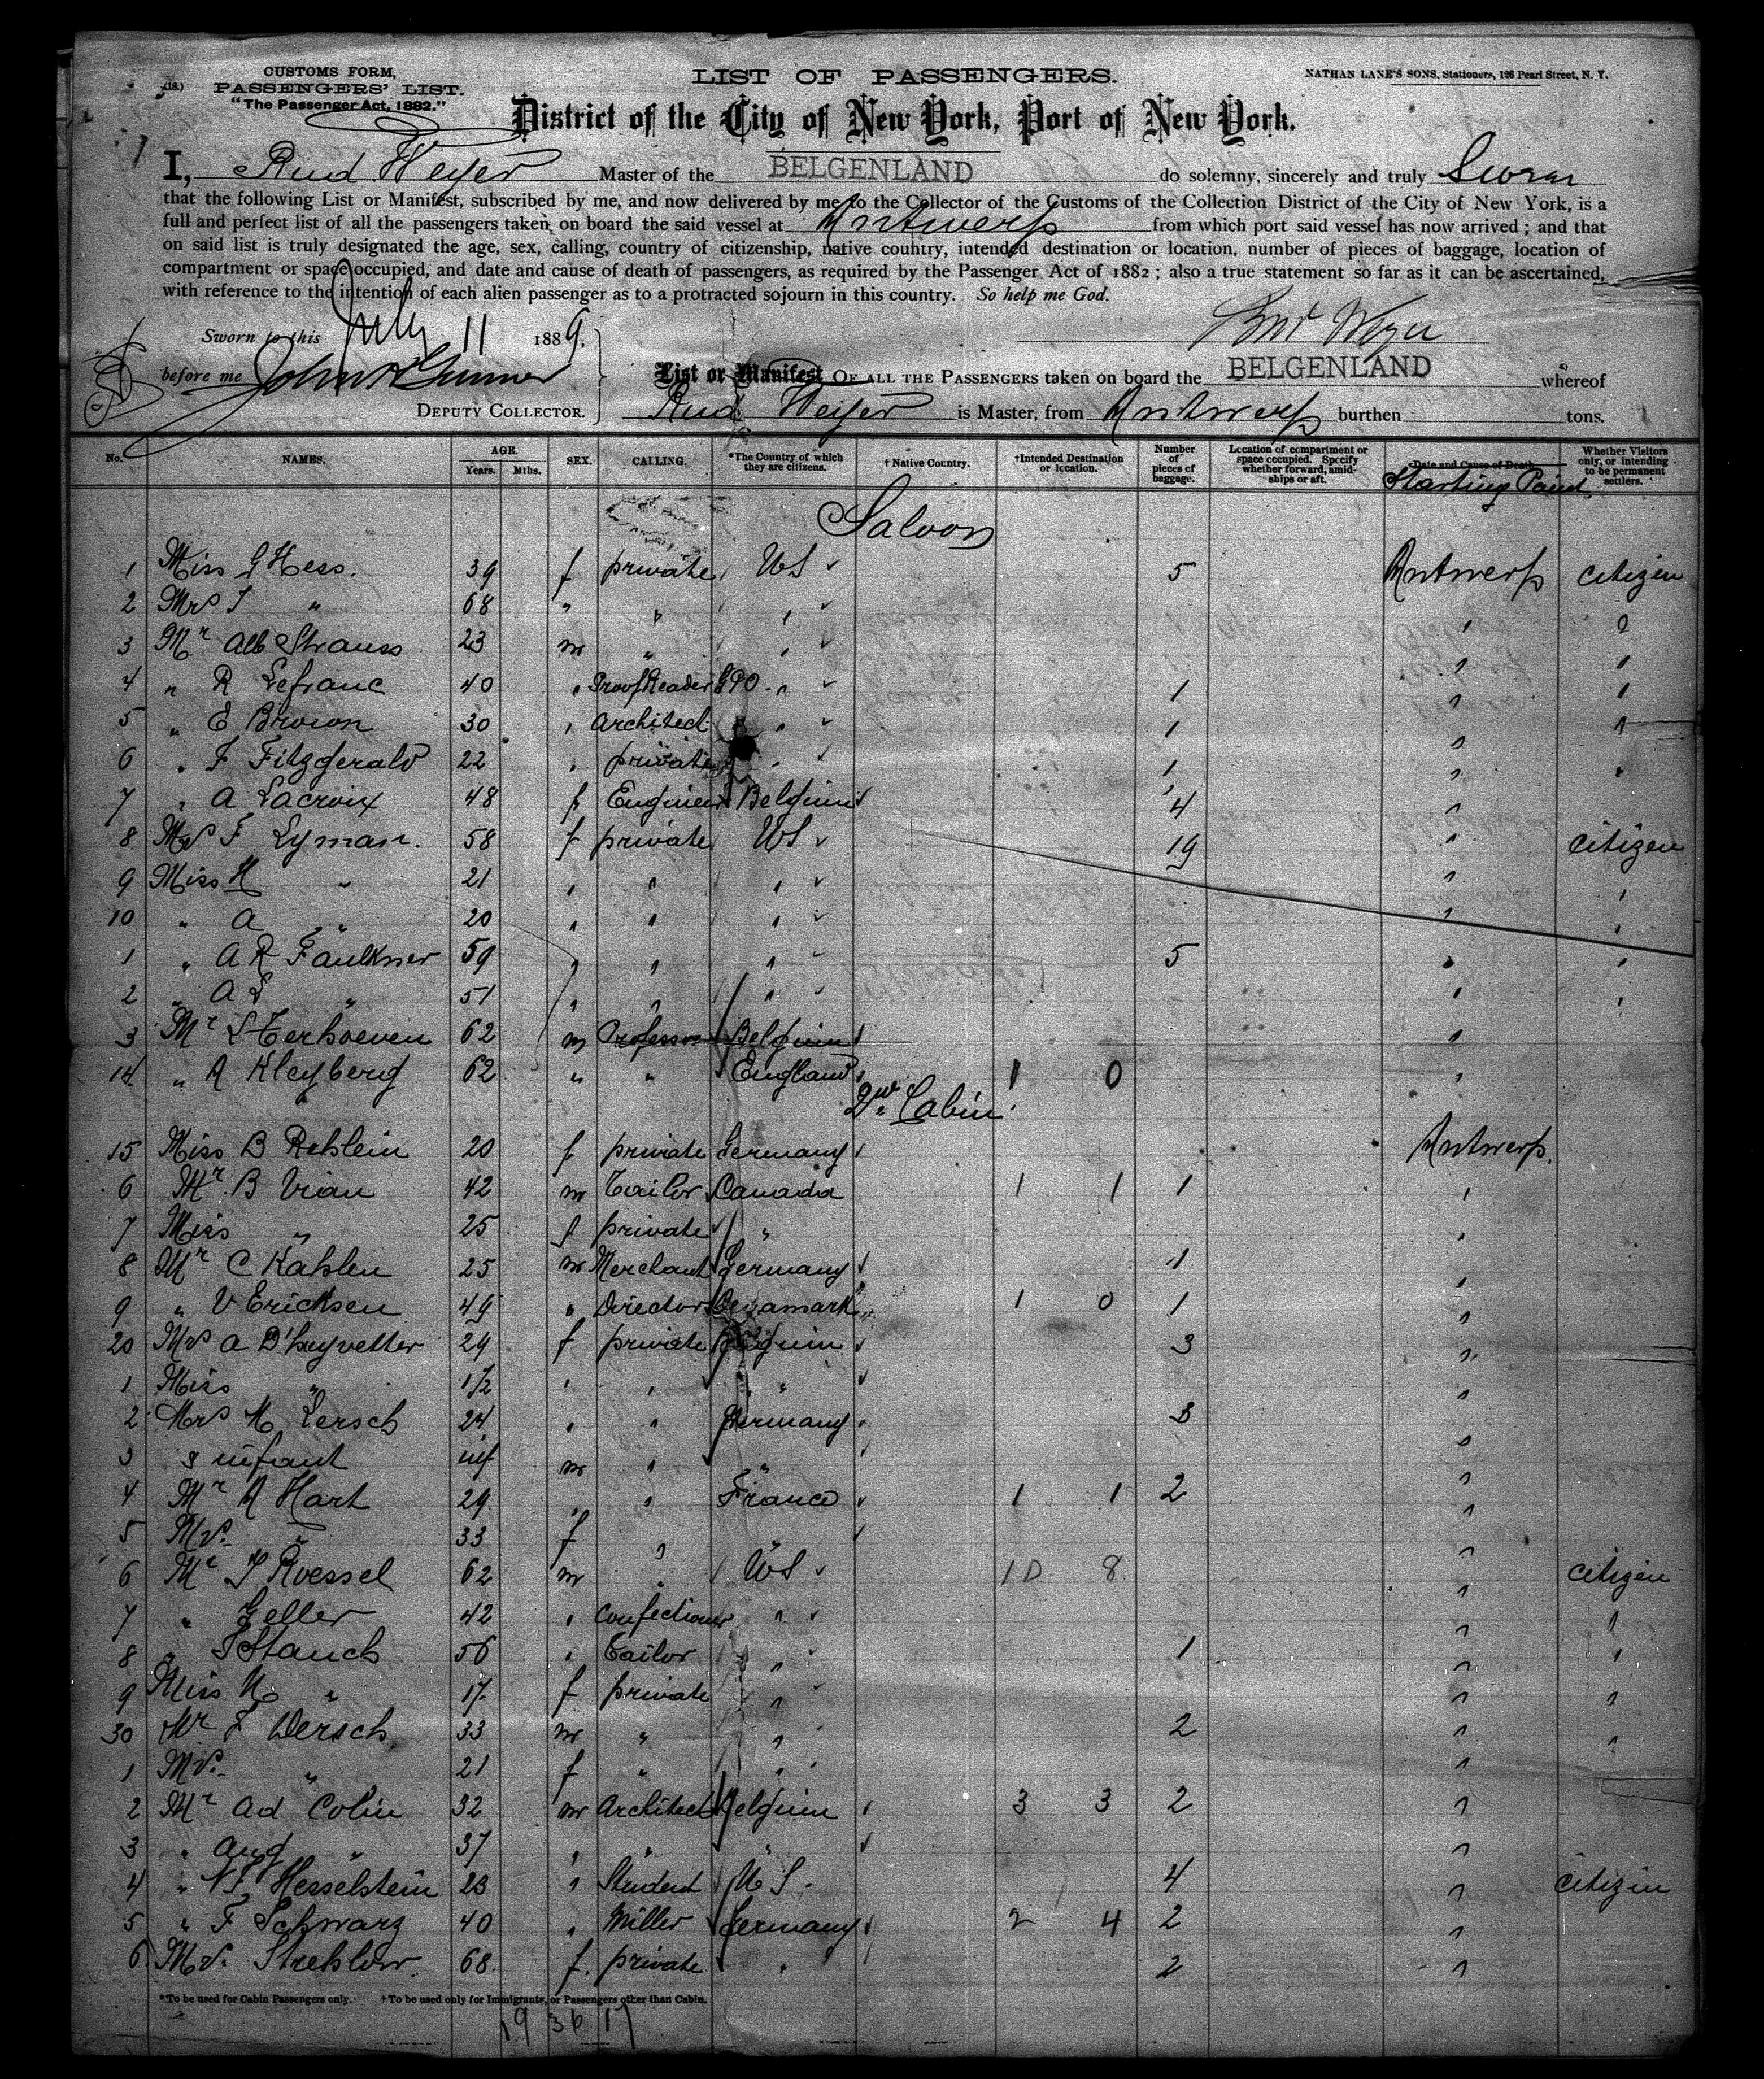 (18.)
CUSTOMS FORM,
PASSENGERS' LIST.
"The Passenger Act, 1882."
LIST OF PASSENGERS.
NATHAN LANE'S SONS, Stationers, 126 Pearl Street, N. Y.
District of the City of New York, Port of New York.
I, Rud Weyer Master of the BELGENLAND do solemny, sincerely and truly Swear
that the following List or Manifest, subscribed by me, and now delivered by me to the Collector of the Customs of the Collection District of the City of New York, is a
full and perfect list of all the passengers taken on board the said vessel at Antwerp from which port said vessel has now arrived ; and that
on said list is truly designated the age, sex, calling, country of citizenship, native country, intended destination or location, number of pieces of baggage, location of
compartment or space occupied, and date and cause of death of passengers, as required by the Passenger Act of 1882 ; also a true statement so far as it can be ascertained,
with reference to the intention of each alien passenger as to a protracted sojourn in this country. So help me God.
Sworn to this July 11 1889.
Rud Weyer
before me
DEPUTY COLLECTOR.
List or Manifest OF ALL THE PASSENGERS taken on board the BELGENLAND whereof
Rud Weyer is Master, from Antwerp burthen tons.
No. NAMES. AGE. Years. Mths. SEX. CALLING. *The Country of which they are citizens. † Native Country. †Intended Destination or location. Number of pieces of baggage. Location of compartment or space occupied. Specify whether forward, amidships or aft. Date and Cause of Death. Starting Point Whether Visitors only, or intending to be permanent settlers.
Saloon
1 Miss G Hess. 39 f private US 5 Antwerp citizen
2 Mrs " 68 " " " " "
3 Mr Alb Strauss 23 m " " " "
4 " R Lefranc 40 " Proof Reader GPO " 1 " "
5 " E Brown 30 " Architect " 1 " "
6 " F Fitzgerald 22 " private " 1 " "
7 " A Lacroix 48 f Engineer Belgium 4 "
8 Mrs F Lyman. 58 f private US 19 " citizen
9 Miss H " 21 " " " " "
10 " A " 20 " " " " "
1 " A R Faulkner 59 " " " 5 " "
2 " A L " 51 " " " " "
3 Mr Terhoeven 62 m Professor Belgium "
14 " A Kleyberg 62 " " England 1 0 "
2nd Cabin
15 Miss B Rehlein 20 f private Germany Antwerp.
6 Mr B Vian 42 m Tailor Canada 1 1 1 "
7 Miss " 25 f private " "
8 Mr C Kahlen 25 m Merchant Germany 1 "
9 " V Ericksen 49 " Director Denamark 1 0 1 "
20 Mrs A D'huyvetter 29 f private Belgium 3 "
1 Miss " 1/2 " " " "
2 Mrs M Lersch 24 " " Germany 3 "
3 & infant inf m " " "
4 Mr A Hart 29 " " France 1 1 2 "
5 Mrs. " 33 f " " "
6 Mr Roessel 62 m " US 10 8 " citizen
7 " Geller 42 " Confectioner " " "
8 " Stauch 56 " Tailor " 1 " "
9 Miss M " 17 f private " " "
30 Mr F Wersch 33 m " " 2 " "
1 Mrs. " 21 f " " "
2 Mr Ad Colin 32 m Architect Belgium 3 3 2 "
3 " Aug " 37 " " " "
4 " Hesselstein 23 " Student US 4 " citizen
5 " F Schwarz 40 " Miller Germany 2 4 2 "
6 Mrs. Strehlow 68 f. private " 2 "
*To be used for Cabin Passengers only. †To be used only for Immigrants, or Passengers other than Cabin.
19 36 17